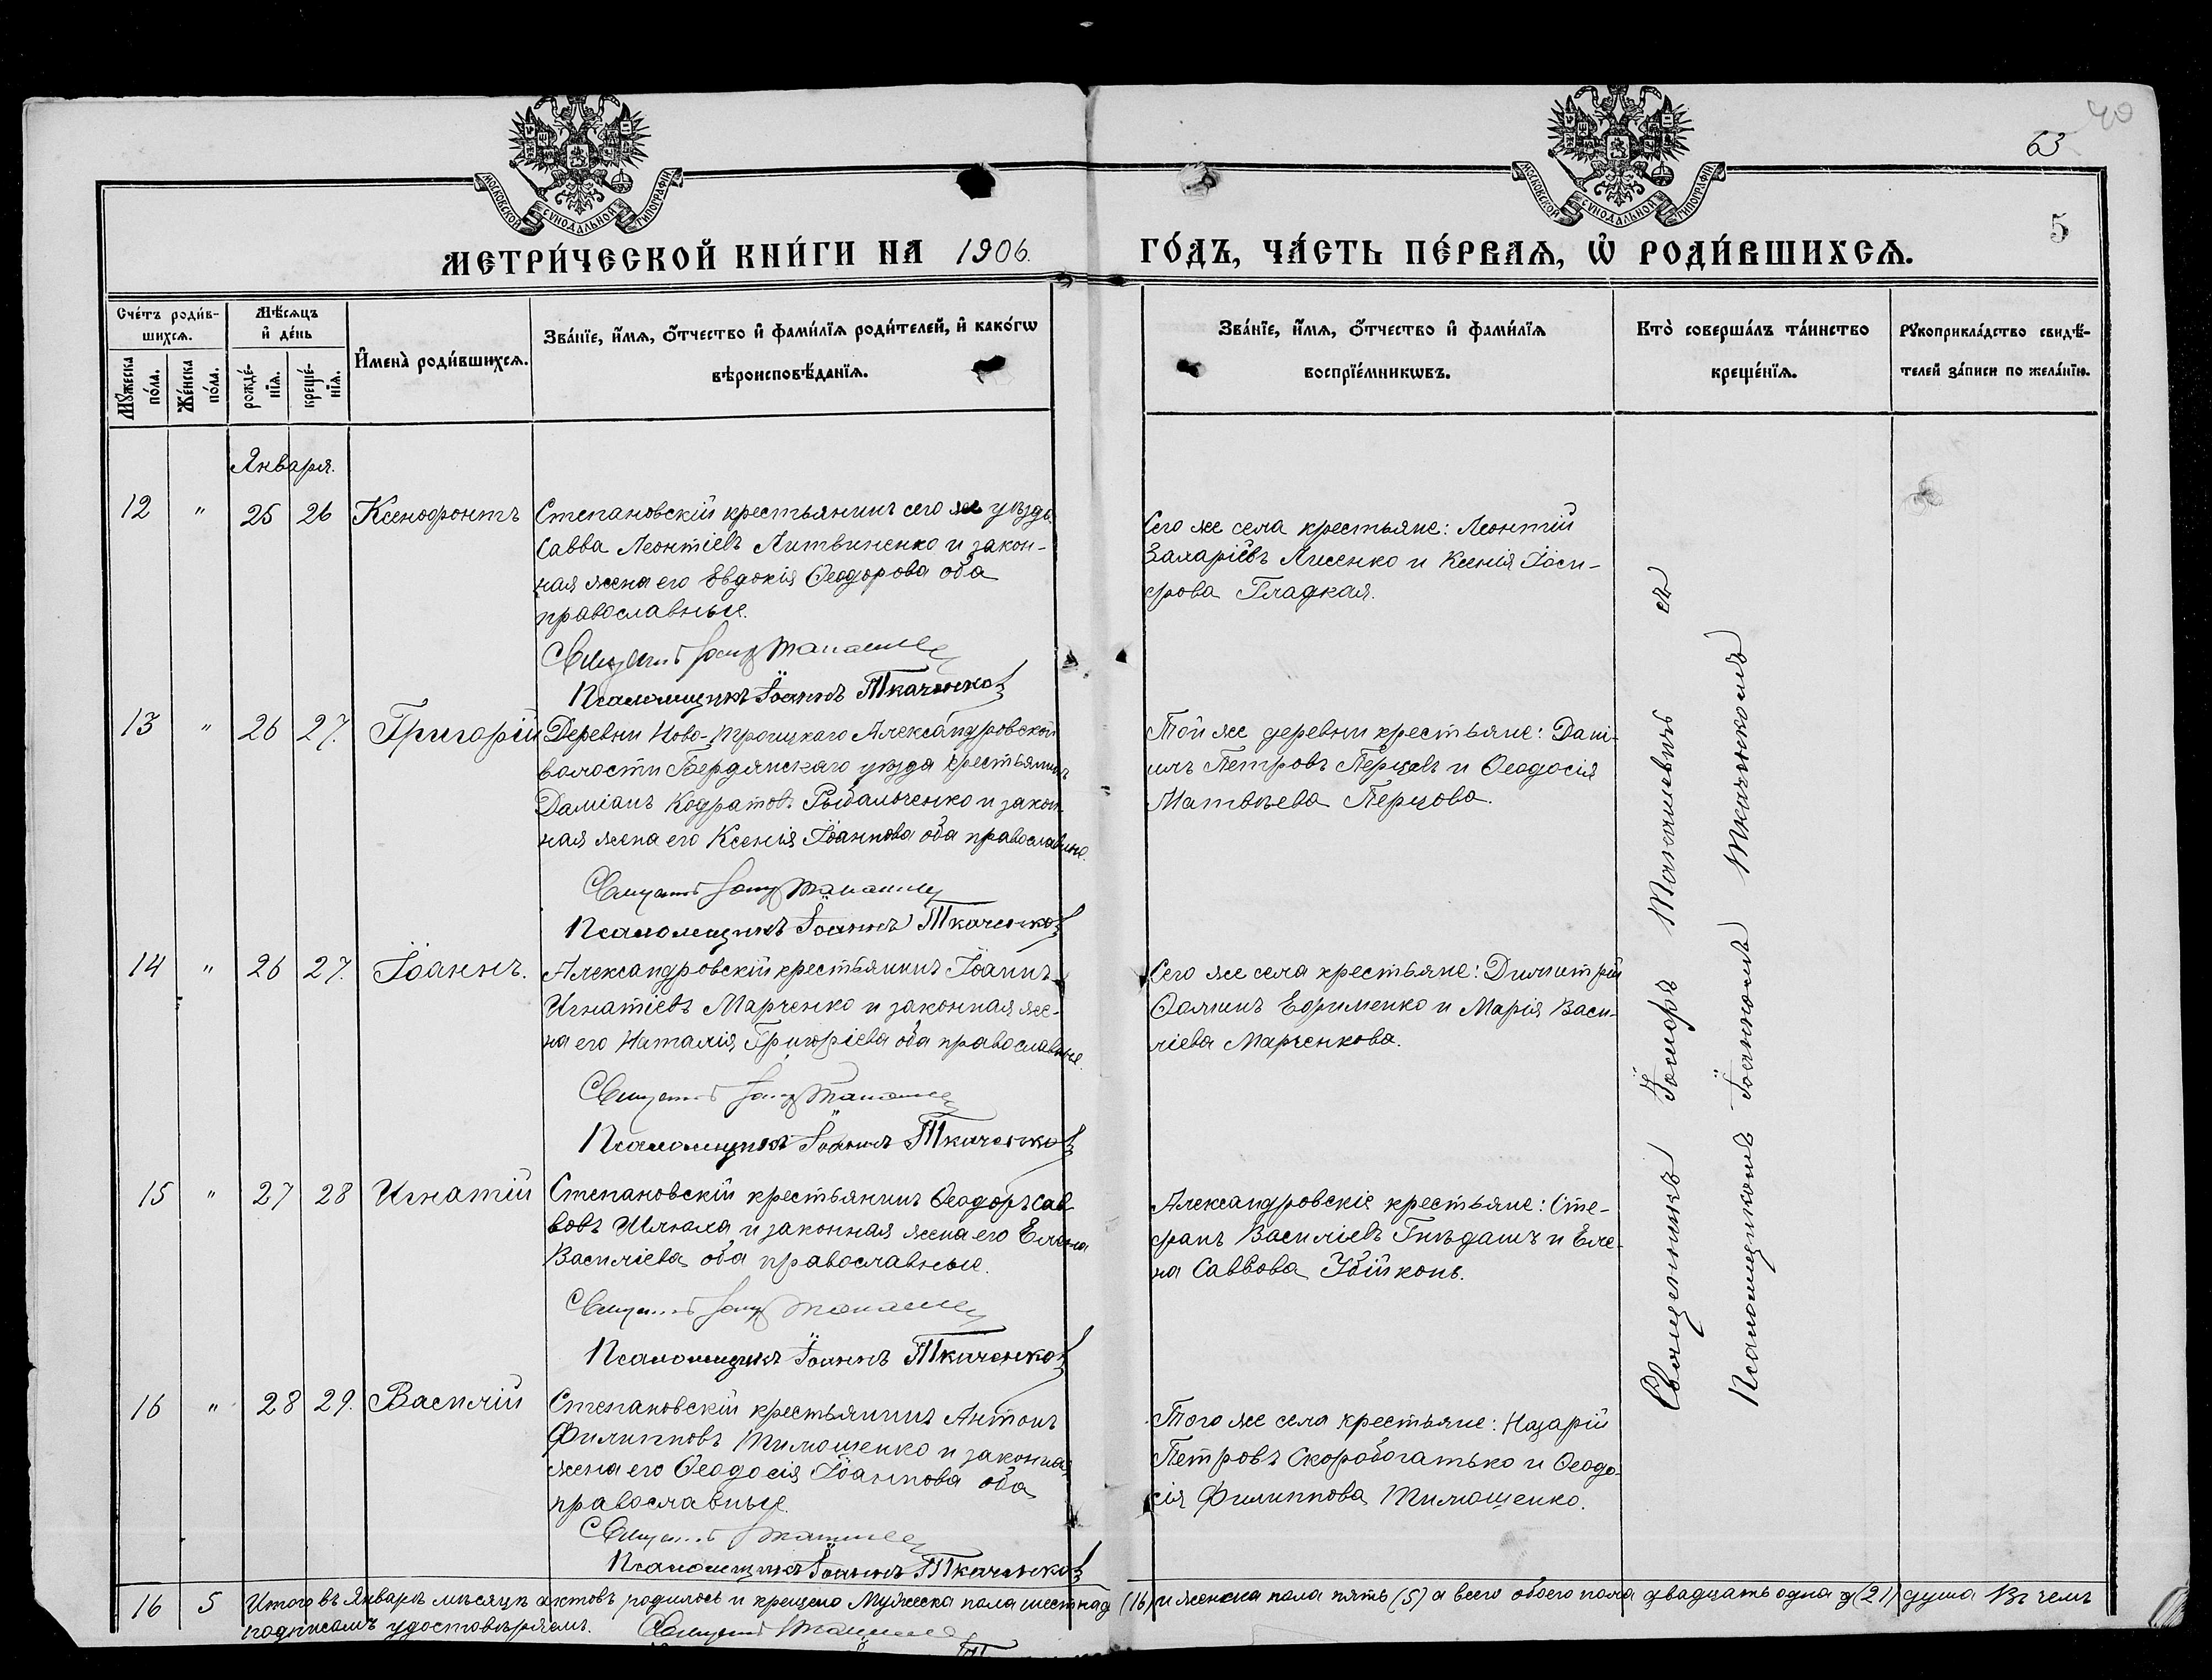 40
63
5
МОСКОВСКОЙ СѴНОДАЛЬНОЙ ТИПОГРАФІИ
МОСКОВСКОЙ СѴНОДАЛЬНОЙ ТИПОГРАФІИ
МЕТРИ́ЧЕСКОЙ КНИ́ГИ НА 1906. ГО́ДЪ, ЧА́СТЬ ПЕ́РВАѦ, Ѡ҆ РОДИ́ВШИХСѦ.
Сче́тъ роди́в-
шихсѧ.
Мꙋ́жеска по́ла.
Же́нска по́ла.
Мѣ́сѧцъ
и҆ де́нь
рожде́-
нїѧ.
креще́-
нїѧ.
И҆мена̀ роди́вшихсѧ.
Зва́нїе, и҆́мѧ, ѻ҆́тчество и҆ фами́лїѧ роди́телей, и҆ како́гѡ
вѣроисповѣ́данїѧ.
Зва́нїе, и҆́мѧ, ѻ҆́тчество и҆ фами́лїѧ
воспрїе́мникѡвъ.
Кто̀ соверша́лъ та́инство
креще́нїѧ.
Рꙋкоприкла́дство свидѣ́-
телей за́писи по жела́нїю.
Января.
12 " 25 26 Ксенофонтъ
Степановскій крестьянинъ сего же уѣзда
Савва Леонтіевъ Литвиненко и закон-
ная жена его Евдокія Ѳеодорова оба
православные.
Псаломщикъ Іоаннъ Ткаченко
Сего же села крестьяне: Леонтій
Захаріевъ Лисенко и Ксенія Іоси-
фова Гладкая.
13 " 26 27. Григорій
Деревни Ново-Троицкаго Александровской
волости Бердянскаго уѣзда крестьянинъ
Даміанъ Кодратовъ Рыбальченко и закон
ная жена его Ксенія Іоаннова оба православные.
Псаломщикъ Іоаннъ Ткаченко
Той же деревни крестьяне: Дані-
илъ Петровъ Перцовъ и Ѳеодосія
Матвѣева Перцова.
14 " 26 27. Іоаннъ.
Александровскій крестьянинъ Іоаннъ
Игнатіевъ Марченко и законная же-
на его Наталія Григоріева оба православные.
Псаломщикъ Іоаннъ Ткаченко
Сего же села крестьяне: Димитрій
Ѳоминъ Ефименко и Марія Васи-
ліева Марченкова.
15 " 27 28 Игнатій
Степановскій крестьянинъ Ѳеодоръ Сав
вовъ Шлюха и законная жена его Елена
Василіева оба православные.
Псаломщикъ Іоаннъ Ткаченко
Александровскіе крестьяне: Сте-
фанъ Василіевъ Гнѣдашъ и Еле-
на Саввова Убійконь.
16 " 28 29. Василій
Степановскій крестьянинъ Антонъ
Филипповъ Тимошенко и законная
жена его Ѳеодосія Іоаннова оба
православные.
Псаломщикъ Іоаннъ Ткаченко
Того же села крестьяне: Назарій
Петровъ Скоробогатько и Ѳеодо-
сія Филиппова Тимошенко.
Священникъ Іосифъ съ
Псаломщикомъ Іоанномъ Ткаченкомъ
16 5 Итого въ Январѣ мѣсяцѣ актовъ родилось и крещено Мужеска пола шестнад (16) и женска пола пять (5) а всего обоего пола двадцать одна (21) душа Въ чемъ
подписомъ удостовѣряемъ.